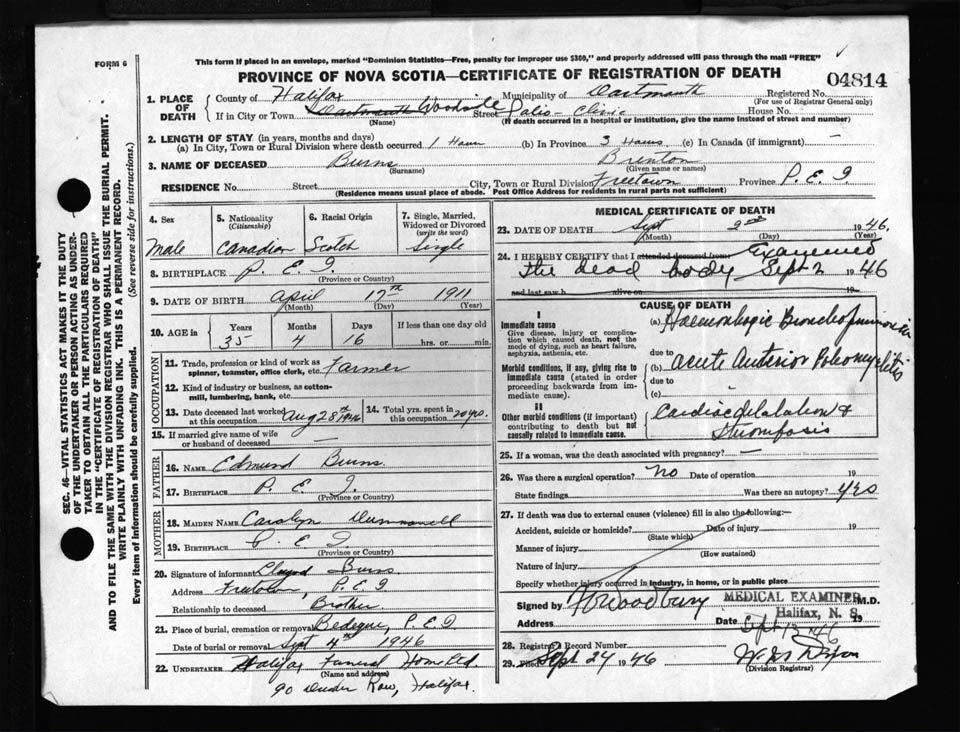 FORM 6
This form if placed in an envelope, marked "Dominion Statistics—Free, penalty for improper use $300," and properly addressed will pass through the mail "FREE"
PROVINCE OF NOVA SCOTIA—CERTIFICATE OF REGISTRATION OF DEATH
04814
1. PLACE OF DEATH
County of Halifax Municipality of Dartmouth Registered No.
(For use of Registrar General only)
If in City or Town Dartmouth Woodside Street Polio - Clinic House No.
(Name) (If death occurred in a hospital or institution, give the name instead of street and number)
2. LENGTH OF STAY (in years, months and days)
(a) In City, Town or Rural Division where death occurred 1 Hour (b) In Province 3 Hours (c) In Canada (if immigrant) —
3. NAME OF DECEASED Burns Brenton
(Surname) (Given name or names)
RESIDENCE No. Street City, Town or Rural Division Freetown Province P.E.I
(Residence means usual place of abode. Post Office Address for residents in rural parts not sufficient)
4. Sex
Male
5. Nationality (Citizenship)
Canadian
6. Racial Origin
Scotch
7. Single, Married, Widowed or Divorced (write the word)
Single
8. BIRTHPLACE P.E.I
(Province or Country)
9. DATE OF BIRTH April 17th 1911
(Month) (Day) (Year)
10. AGE in Years Months Days If less than one day old
35 4 16 hrs. or min.
OCCUPATION
11. Trade, profession or kind of work as spinner, teamster, office clerk, etc. Farmer
12. Kind of industry or business, as cotton-mill, lumbering, bank, etc.
13. Date deceased last worked at this occupation Aug 28th 1946
14. Total yrs. spent in this occupation 20 yrs.
15. If married give name of wife or husband of deceased —
FATHER
16. NAME Edmund Burns
17. BIRTHPLACE P.E.I.
(Province or Country)
MOTHER
18. MAIDEN NAME Carolyn
19. BIRTHPLACE P.E.I
(Province or Country)
20. Signature of informant Lloyd Burns
Address Freetown, P.E.I
Relationship to deceased Brother
21. Place of burial, cremation or removal Bedeque, P.E.I
Date of burial or removal Sept 4th 1946
22. UNDERTAKER Halifax Funeral Home Ltd.
(Name and address)
90 Row, Halifax.
MEDICAL CERTIFICATE OF DEATH
23. DATE OF DEATH Sept 2nd 1946
(Month) (Day) (Year)
24. I HEREBY CERTIFY that I attended deceased from Examined
the dead body Sept 2 1946
and last saw h alive on 19
CAUSE OF DEATH
I
Immediate cause
Give disease, injury or complication which caused death, not the mode of dying, such as heart failure, asphyxia, asthenia, etc.
(a) Haemorrhagic Bronchopneumonia
due to
Morbid conditions, if any, giving rise to immediate cause (stated in order proceeding backwards from immediate cause).
(b) acute anterior Poliomyelitis
due to
(c)
II
Other morbid conditions (if important) contributing to death but not causally related to immediate cause.
Cardiac dilatation &
25. If a woman, was the death associated with pregnancy? —
26. Was there a surgical operation? No Date of operation 19
State findings Was there an autopsy? yes
27. If death was due to external causes (violence) fill in also the following:—
Accident, suicide or homicide? Date of injury 19
(State which)
Manner of injury
(How sustained)
Nature of injury
Specify whether injury occurred in industry, in home, or in public place
Signed by Woodbury M.D.
MEDICAL EXAMINER
Halifax, N. S.
Address Date Sept 12 46 19
28. Registrar's Record Number
29. Filed Sept 24 1946
(Division Registrar)
SEC. 46—VITAL STATISTICS ACT MAKES IT THE DUTY
OF THE UNDERTAKER OR PERSON ACTING AS UNDER-
TAKER TO OBTAIN ALL THE PARTICULARS REQUIRED
IN THE "CERTIFICATE OF REGISTRATION OF DEATH"
AND TO FILE THE SAME WITH THE DIVISION REGISTRAR WHO SHALL ISSUE THE BURIAL PERMIT.
WRITE PLAINLY WITH UNFADING INK. THIS IS A PERMANENT RECORD.
Every item of information should be carefully supplied. (See reverse side for instructions.)